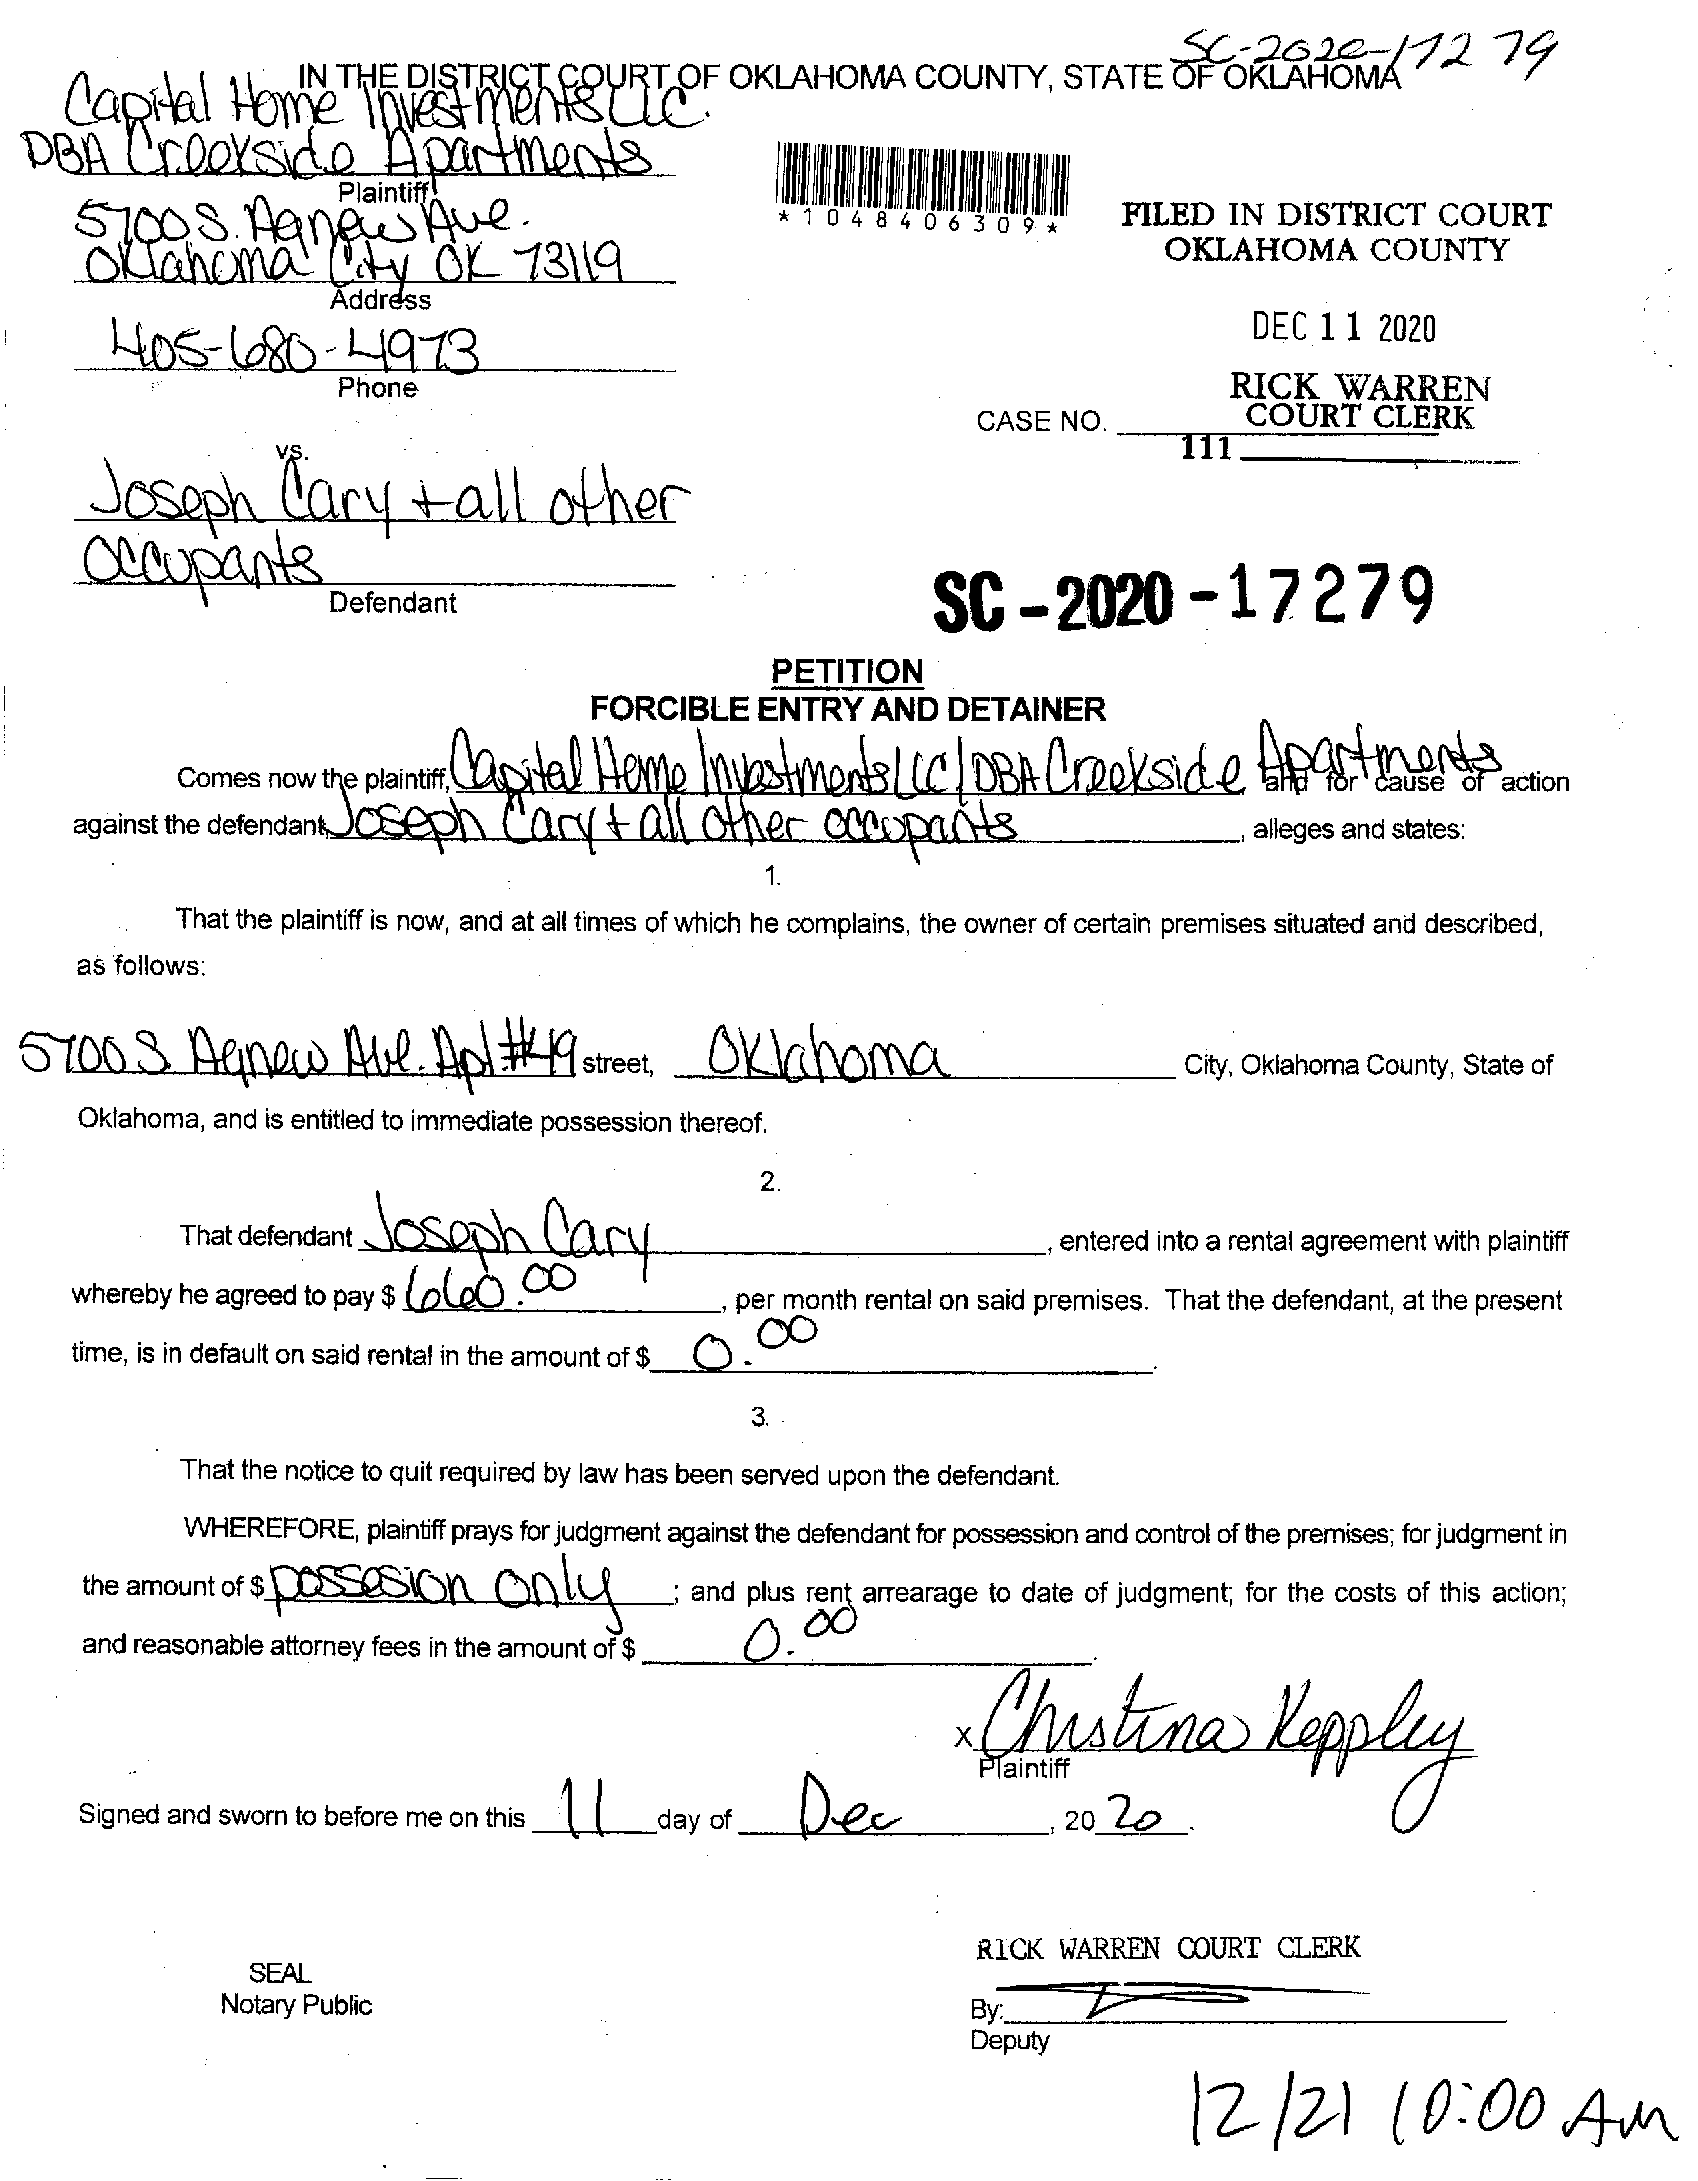 SC-2020-17279
IN THE DISTRICT COURT OF OKLAHOMA COUNTY, STATE OF OKLAHOMA
Capital Home Investments LLC.
DBA Creekside Apartments
Plaintiff
5700 S. Agnew Ave.
Oklahoma City OK 73119
Address
405-680-4973
Phone
*1048406309*
FILED IN DISTRICT COURT
OKLAHOMA COUNTY
DEC 11 2020
RICK WARREN
COURT CLERK
CASE NO.
111
vs.
Joseph Cary + all other
occupants
Defendant
SC-2020-17279
PETITION
FORCIBLE ENTRY AND DETAINER
Comes now the plaintiff, Capital Home Investments LLC/DBA Creekside Apartments and for cause of action
against the defendant, Joseph Cary + all other occupants, alleges and states:
1.
That the plaintiff is now, and at all times of which he complains, the owner of certain premises situated and described,
as follows:
5700 S Agnew Ave. Apt #49 street, Oklahoma City, Oklahoma County, State of
Oklahoma, and is entitled to immediate possession thereof.
2.
That defendant Joseph Cary, entered into a rental agreement with plaintiff
whereby he agreed to pay $ 660.00, per month rental on said premises. That the defendant, at the present
time, is in default on said rental in the amount of $ 0.00.
3.
That the notice to quit required by law has been served upon the defendant.
WHEREFORE, plaintiff prays for judgment against the defendant for possession and control of the premises; for judgment in
the amount of $ possesion only; and plus rent arrearage to date of judgment; for the costs of this action;
and reasonable attorney fees in the amount of $ 0.00.
x Christina Keppley
Plaintiff
Signed and sworn to before me on this 11 day of Dec, 20 20.
RICK WARREN COURT CLERK
SEAL
Notary Public
By:
Deputy
12/21 10:00 AM